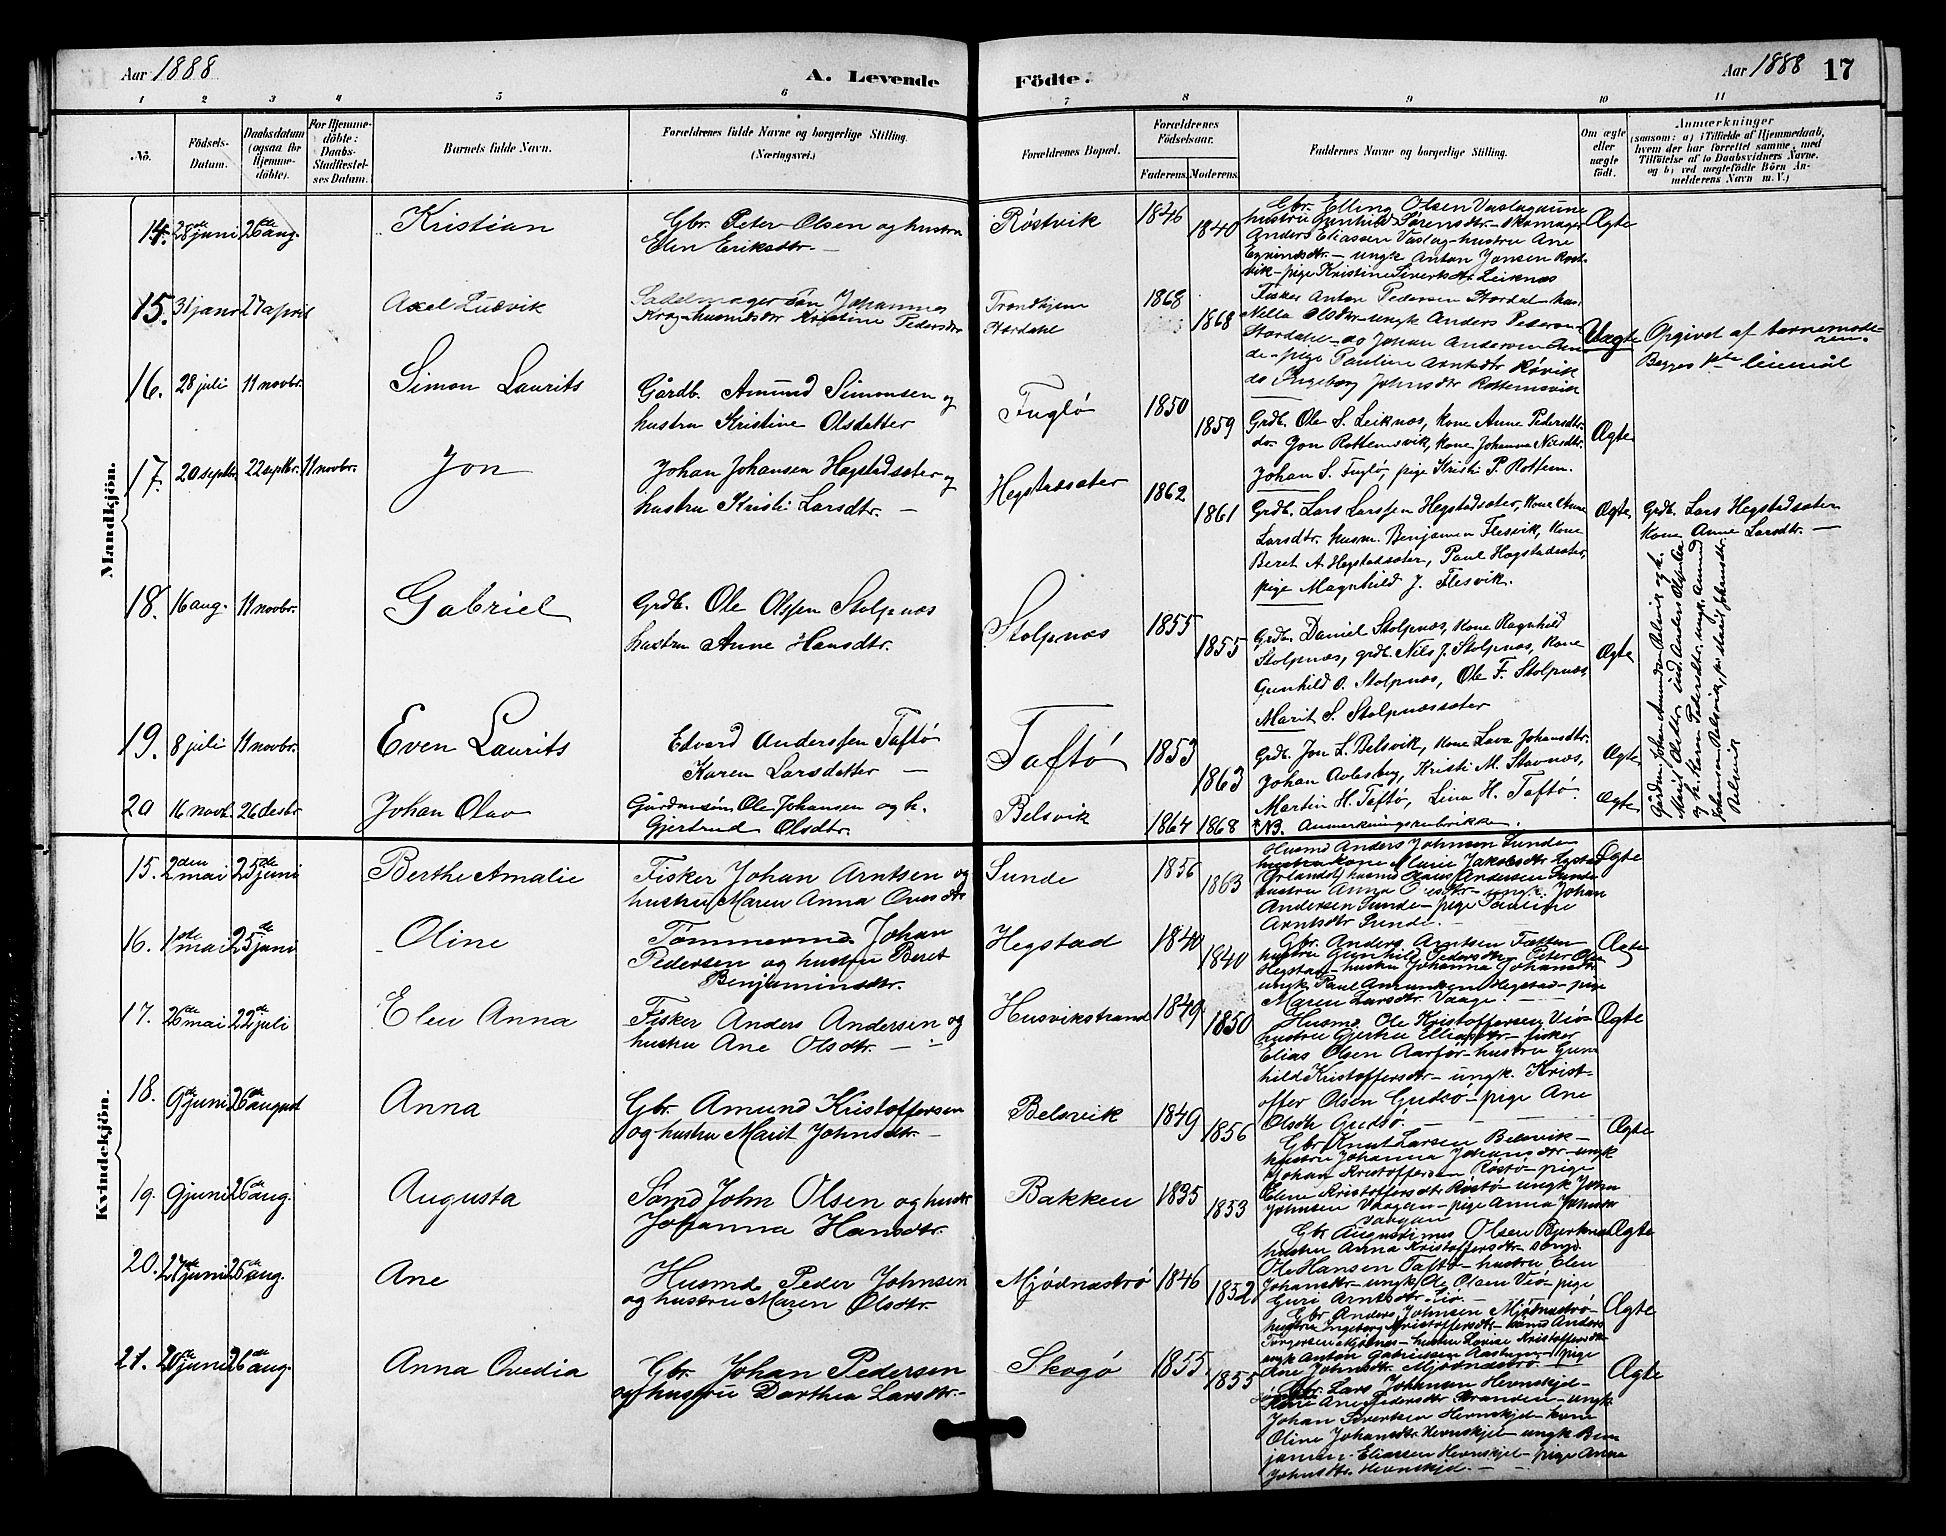 Aar 1888
A. Levende
Födte.
Aar 1888 17
1 2 3 4 5 6 7 8 9 10 11
No.
Födsels-
Datum.
Daabsdatum
(ogsaa for
Hjemme-
döbte).
For Hjemme-
döbte:
Daabs-
Stadfæstel-
ses Datum.
Barnets fulde Navn.
Forældrenes fulde Navne og borgerlige Stilling.
(Næringsvei.)
Forældrenes Bopæl.
Forældrenes
Födselsaar.
Faderens. Moderens.
Faddernes Navne og borgerlige Stilling.
Om ægte
eller
uægte
født.
Anmærkninger
(saasom: a) i Tilfælde af Hjemmedaab,
hvem der har forrettet samme, med
Tilföielse af to Daabsvidners Navne.
og b) ved uægtefödte Börn An-
melderens Navn m. V.)
Mandkjön.
14. 28de juni 26de aug.
Kristian
Gbr. Peter Olsen og hustru
Elen Eriksdtr. —
Røstvik
1846
1840
Gbr. Elling Olsen Vaslagaune
hustru Gunhild Sørensdtr - skomager
Anders Eliassen Vaslag - hustru Ane
- ungk Anton Jonsen Røst-
vik - pige Kristine Sivertsdtr Leiknæs
Ægte
15. 31 janr 27 april
Axel Ludvik
Sadelmager Johannes
Krog - husmdsdtr Kristine Pedersdtr
Trondhjem
Stordahl
1868
1868
Fisker Anton Pedersen Stordal - hus.
Nilla Olsdtr - ungk Anders Pedersen
Stordahl - do Johan Andersen
- pige Pauline Arntsdtr Røvik
do Ingeborg Johnsdtr Rottemsvik
Uægte
Opgivet af barnemode-
ren.
Begges 1ste leiermål
16. 28 juli 11 novbr.
Simon Laurits
Gårdb. Amund Simonsen og
hustru Kristine Olsdatter
Fuglø
1850
1859
Grdb. Ole S. Leiknæs, kone Anne Pedersdtr.
do. Jon Rottemsvik, kone Johanna Nilsdtr.
Johan S. Fuglø, pige Kristi P. Rottem.
Ægte
17. 20 septbr. 22 septbr. 11 novbr.
Jon
Johan Johansen Hegstadsæter og
hustru Kristi Larsdtr. —
Hegstadsæter
1862
1861
Grdb. Lars Larssen Hegstadsæter, kone Anne
Larsdtr. husm. Benjamin Flesvik, kone
Beret A. Hegstadsæter, Paul Hegstadsæter,
pige Magnhild J. Flesvik.
Ægte
Grdb. Lars Hegstadsæter
kone Anne Larsdtr. —
18. 16 aug. 11 novbr.
Gabriel
Grdb. Ole Olssen Stolpnæs
hustru Anne Hansdtr.
Stolpnæs
1855
1855
Grdb. Daniel Stolpnæs, kone Ragnhild
Stolpnæs, grdb. Nils J. Stolpnæs, kone
Gunhild O. Stolpnæs, Ole F. Stolpnæs,
Marit S. Stolpnæssæter
Ægte
19. 8 juli 11 novbr.
Even Laurits
Edvard Anderssen Taftø
Karen Larsdatter —
Taftø
1853
1863
Grdb. Jon L. Belsvik, kone Lava Johansdtr.
Johan Avlesberg, Kristi M. Stavnæs,
Martin H. Taftø, Lina H. Taftø.
Ægte
20 16 novb. 26 desbr
Johan Olav
Gårdmansøn Ole Johansen og h.
Gjertrud Olsdtr.
Belsvik
1864 1868
NB. Anmærkningsrubrikken.
Ægte
Gårdm. Johan Amundsen Belsvik og h.
Marit Olsdtr., ind. Anders
og h. Karen Pedersdtr., ungk. Amund
Johansen Belsvik, Johansdtr.
Belsvik
Kvindekjön.
15. 2den mai 25de juni
Berthe Amalie
Fisker Johan Arntsen og
hustru Maren Anna Ovesdtr
Sunde
1856
1863
Husmd Anders Johnsen Sunde
kone Marie Jakobsdtr
Ørlandet, husmd Claus Andersen Sunde
hustru Anna Olsdtr - ungk. Johan
Andersen Sunde - pige Pauline
Arntsdtr Sunde. —
Ægte
16. 1ste mai 25de juni
Oline
Tømmermd. Johan
Pedersen og hustru Beret
Benjaminsdtr.
Hegstad
1840
1840
Gbr. Anders Arntsen Fætten
hustru Gunhild Pedersdtr - Peter Olsen
Hegstad - hustru Johanna Johansdtr
ungk Paul Amundsen Hegstad - pige
Maren Larsdtr Vaage. —
Ægte
17. 26de mai 22de juli
Elen Anna
Fisker Anders Andersen og
hustru Ane Olsdtr. —
Husvikstrand
1849
1850
Husmd Ole Kristoffersen Viø -
hustru Gjertru Eliasdtr - fisker
Elias Olsen Aarfør - hustru Gun
hild Kristoffersdtr - ungk. Krist-
offer Olsen Gudsø - pige Ane
Olsdtr Gudsø. —
Ægte
18. 9de juni 26de august
Anna
Gbr. Amund Kristoffersen
og hustru Marit Johnsdtr. —
Belsvik
1849
1856
Gbr Knut Larsen Belsvik -
hustru Johanna Johansdtr - ungk
Johan Kristoffersen Røstø - pige
Eline Kristoffersdtr Røstø - ungk John
Johnsen Vaagan - pige Anna Johnsdtr
Vaagan
Ægte
19. 9 juni 26de aug.
Augusta
John Olsen og hustr
Johanna Hansdtr.
Bakken
1835
1853
Gbr Augustinus Olsen Bjerknes
hustru Anna Kristoffersdtr -
Ole Hansen Taftø - hustru Elen
Johansdtr - ungk Ole Olsen Viø - pige
Guri Arntsdtr Viø. —
Ægte
20. 27de juni 26de aug.
Ane
Husmd Peder Johnsen
og hustru Maren Olsdtr.
Mjødnæstrø
1846
1852
Gbr Anders Johnsen Mjødnæstrø -
hustru Ingeborg Kristoffersdtr - Anders
Torgersen Mjødnæs - hustru Lovise Kristoffersdtr
ungk Anton Gabrielsen - pige
Ane Johnsdtr. Mjødnæstrø. —
Ægte
21. 20de juni 26de aug.
Anna Ovedia
Gbr. Johan Pedersen
og hustru Dorthea Larsdtr. —
Skogø
1855
1855
Gbr. Lars Johansen Hevnskjel -
Ane Pedersdtr Stranden - ungk.
Johan Sivertsen Hevnskjel - kone
Oline Johansdtr Hevnskjel - ungk Ben
jamin Eliassen Hevnskjel - pige Anna
Johnsdtr. Hevnskjel. —
Ægte